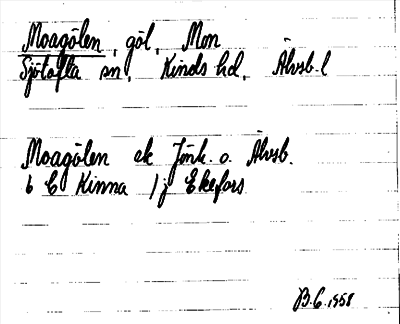 Moagölen, göl, Mon
Sjötofta sn, Kinds hd, Älvsb. l
Moagölen ek Jönk. o. Älvsb.
6 C Kinna 1 j Ekefors
B.G. 1958